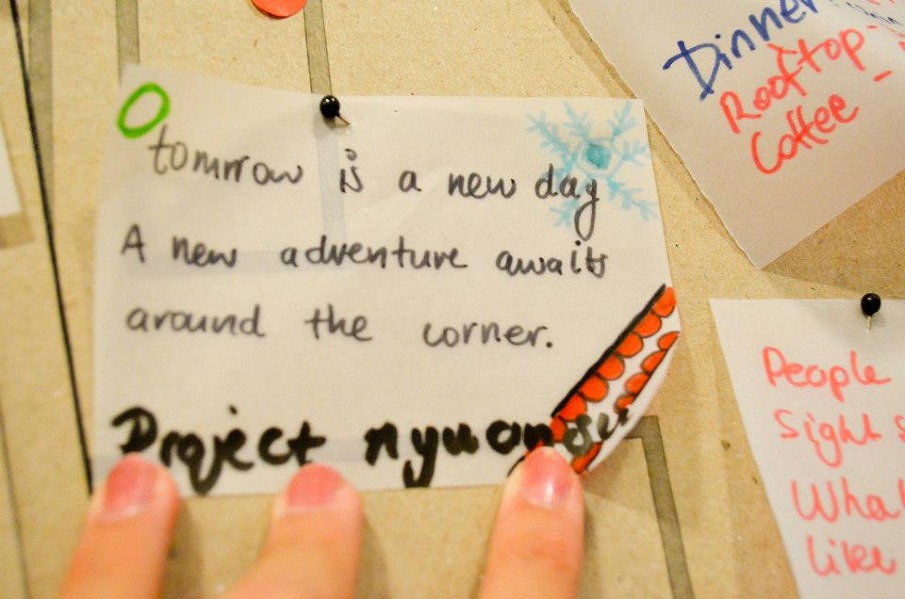 tomrrow is a new day
A new adventure awaits
around the corner.
Project
Dinner
Rooftop
Coffee -
People
Sight
What
like